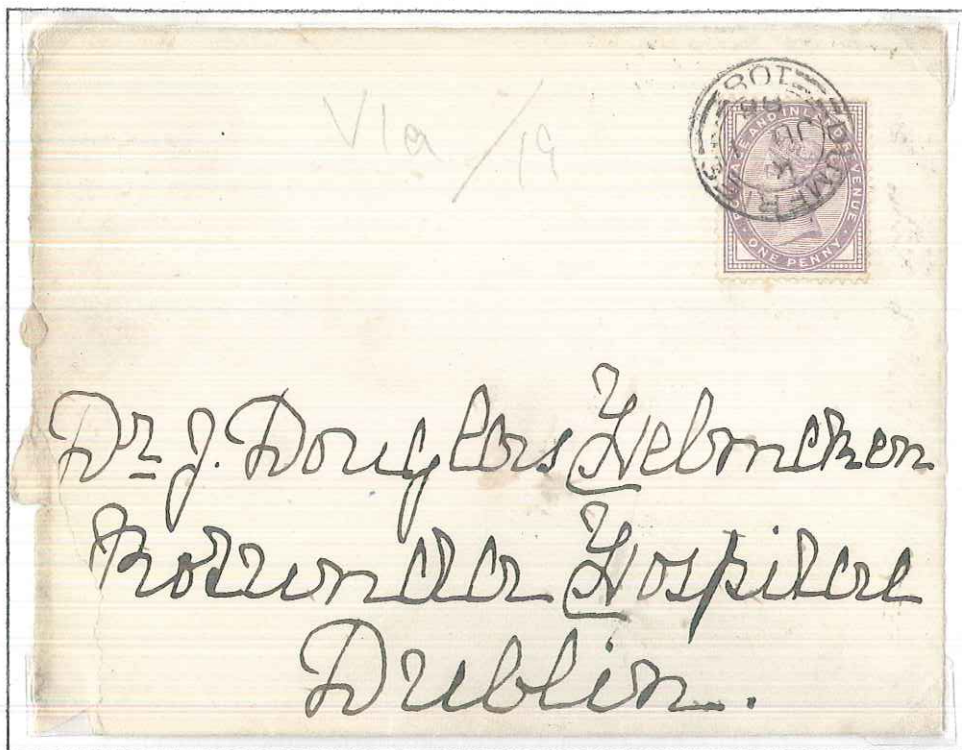 Via /19
POSTAGE AND INLAND REVENUE
ONE PENNY
Dr J. Douglas Helmcken
Rotunda Hospital
Dublin.